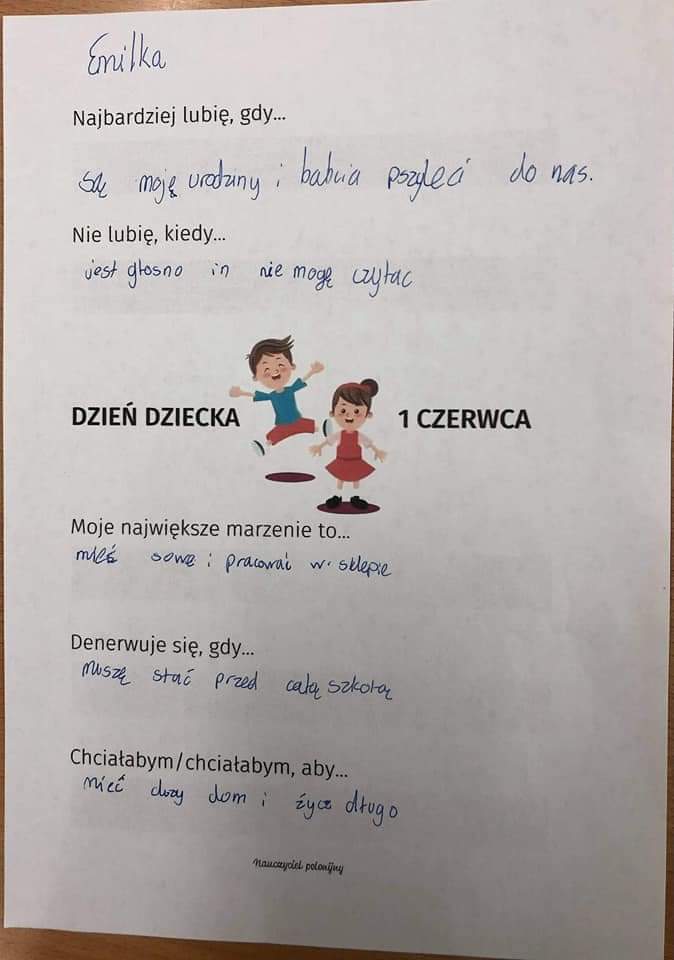 Emilka
Najbardziej lubię, gdy...
są moję urodziny i babcia pszyleci do nas.
Nie lubię, kiedy...
jest głosno in nie mogę czytac
DZIEŃ DZIECKA 1 CZERWCA
Moje największe marzenie to...
mieć sowę i pracować w sklepie
Denerwuje się, gdy...
muszę stać przed całą szkołą
Chciałabym/chciałabym, aby...
mieć duzy dom i życz długo
Nauczyciel polonijny